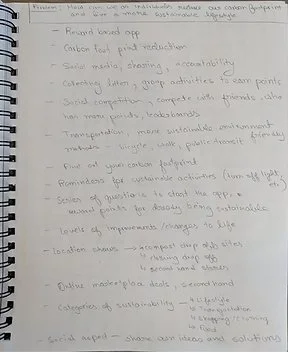 Problem: How can we as individuals reduce our carbon footprint
and live a more sustainable lifestyle
- Reward based app
- Carbon foot print reduction
- Social media, sharing, accountability
- Collecting litter, group activities to earn points
- Social competition, compete with friends, who
has more points, leaderboards
- Transportation, more sustainable environment friendly
methods - bicycle, walk, public transit
- Find out your carbon footprint
- Reminders for sustainable activities (turn off light, etc)
- Series of questions to start the app,
reward points for already being sustainable
- Levels of improvements/changes to life
- location shows → compost drop off sites
↳ clothing drop off
↳ second hand stores
- Online marketplace deals, secondhand
- Categories of sustainability → Lifestyle
↳ Transportation
↳ shopping/clothing
↳ Food
- Social aspect - share our ideas and solutions